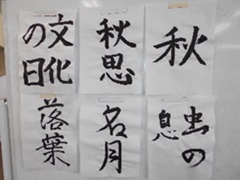 秋
秋思
文化
の日
虫の
息
名月
落葉